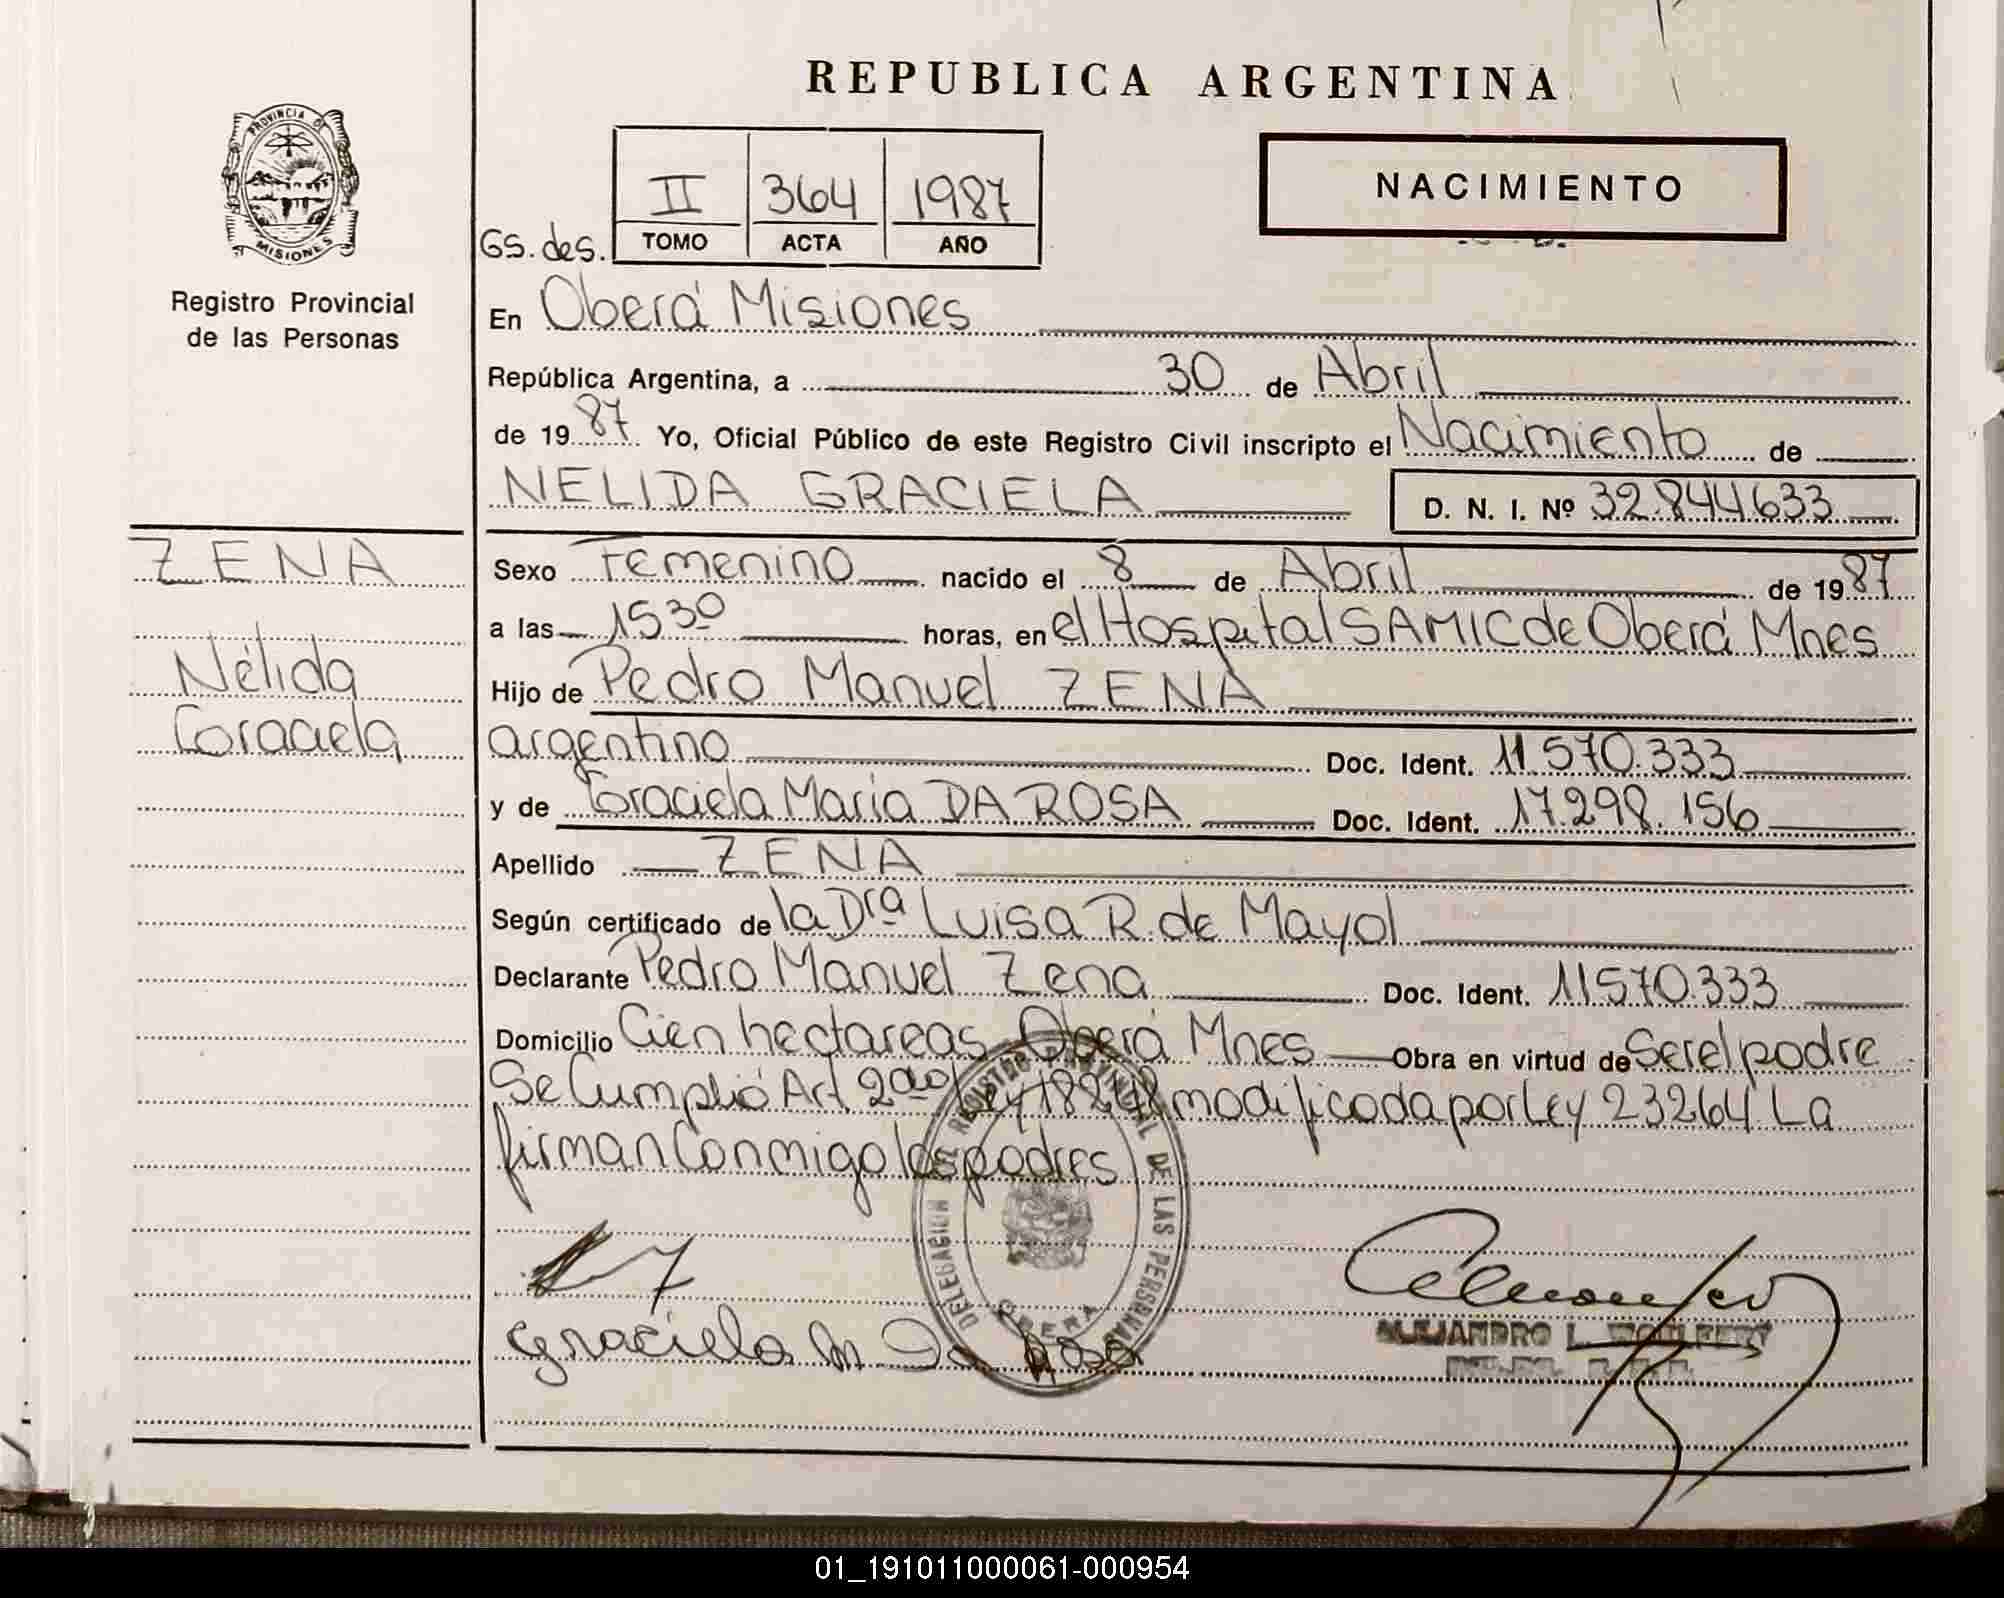 REPUBLICA ARGENTINA
PROVINCIA DE
MISIONES
Registro Provincial
de las Personas
NACIMIENTO
II 364 1987
GS. des. TOMO ACTA AÑO
En Oberá Misiones
República Argentina, a 30 de Abril
de 1987 Yo, Oficial Público de este Registro Civil inscripto el Nacimiento de
NELIDA GRACIELA D. N. I. Nº 32.844.633
ZENA
Nélida
Graciela
Sexo Femenino nacido el 8 de Abril de 1987
a las 1530 horas, en el Hospital SAMIC de Oberá Mnes
Hijo de Pedro Manuel ZENA
argentino Doc. Ident. 11.570.333
y de Graciela María DA ROSA Doc. Ident. 17.298.156
Apellido ZENA
Según certificado de la Dra Luisa R. de Mayol
Declarante Pedro Manuel Zena Doc. Ident. 11570.333
Domicilio Cien hectareas Oberá Mnes Obra en virtud de Ser el padre
Se Cumplió Art 2do Ley 18248 modificada por Ley 23264 La
firman Conmigo los padres
DELEGACION DEL REGISTRO PROVINCIAL DE LAS PERSONAS
OBERA
Graciela M Da Rosa
ALEJANDRO L.
01_191011000061-000954